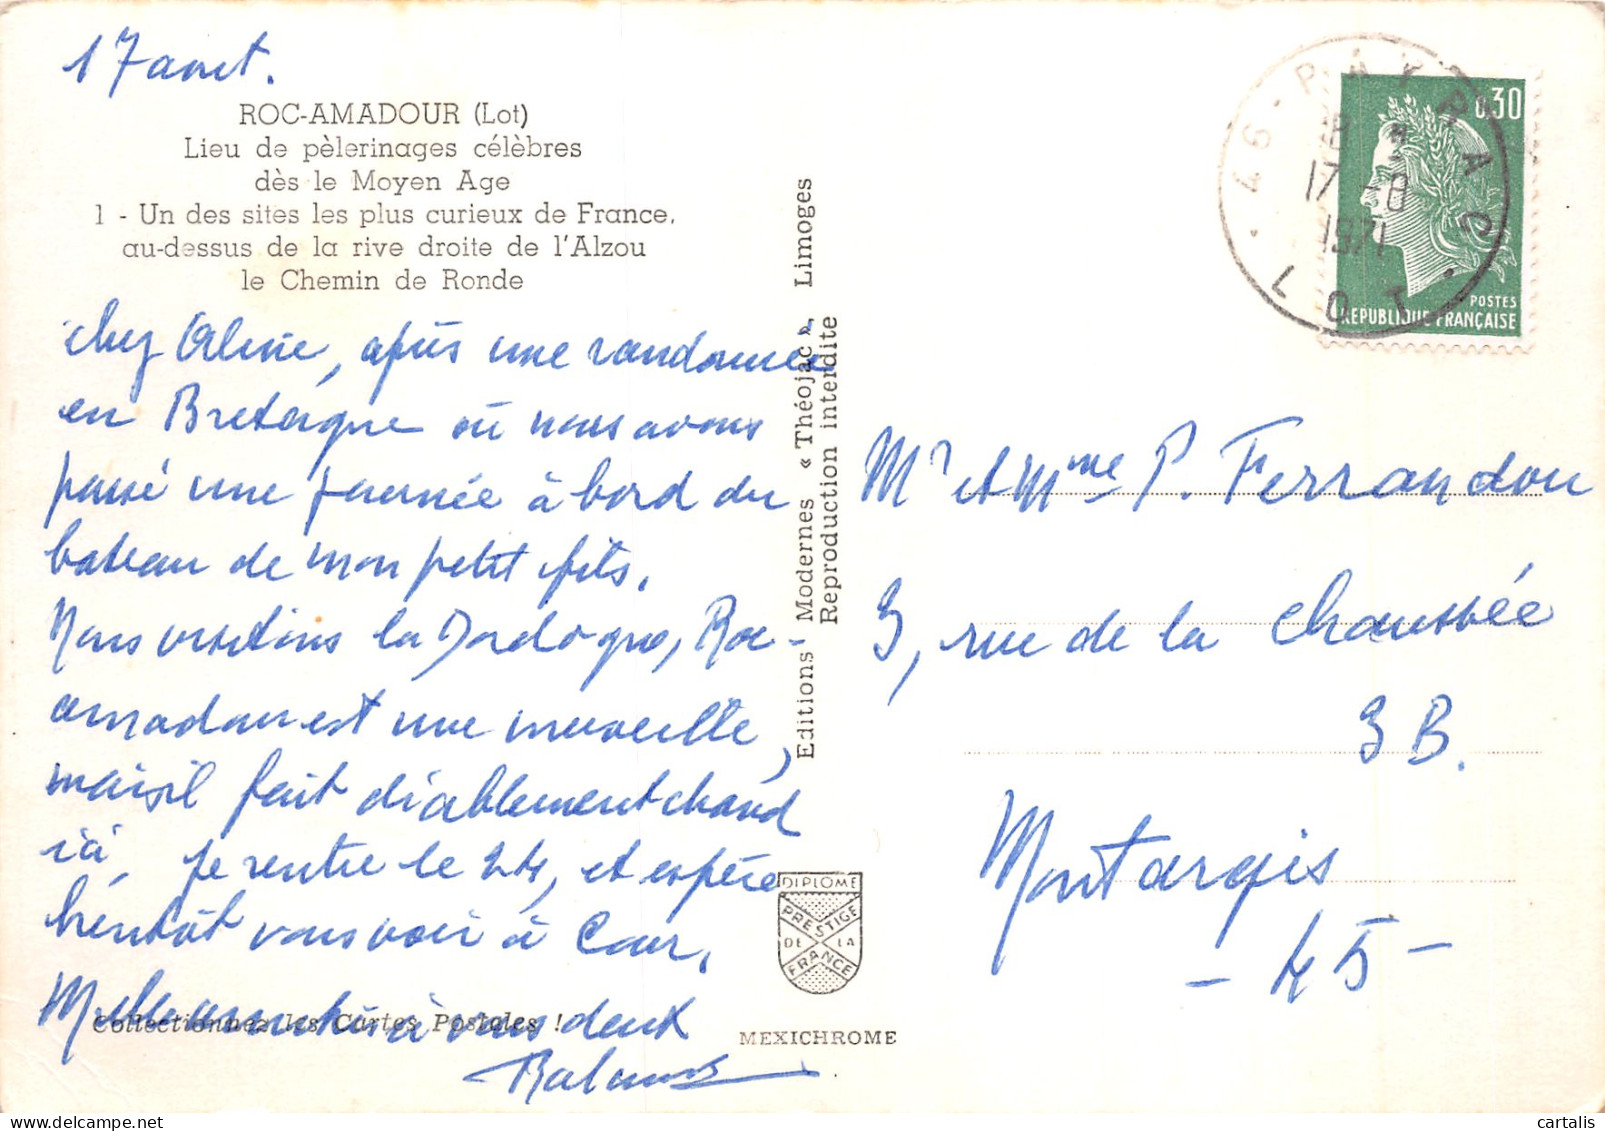 17 aout.
ROC-AMADOUR (Lot)
Lieu de pèlerinages célèbres
dès le Moyen Age
1 - Un des sites les plus curieux de France,
au-dessus de la rive droite de l'Alzou
le Chemin de Ronde
chez Aline, après une randonnée
en Bretagne où nous avons
passé une journée à bord du
bateau de mon petit fils.
Nous visitons la Dordogne, Roc-
amadour est une merveille,
mais il fait diablement chaud
ici, je rentre le 24, et espère
bientôt vous voir à
amitiés à vous deux
Collectionnez les Cartes Postales !
Editions Modernes « Théojac », Limoges
Reproduction interdite
DIPLOME
PRESTIGE
DE LA
FRANCE
MEXICHROME
46 - PAYRAC
17 -8
1971
LOT
0,30
POSTES
REPUBLIQUE FRANÇAISE
Mr et Mme P. Ferrandou
3, rue de la Chaussée
3 B.
Montargis
- 45 -
cartalis